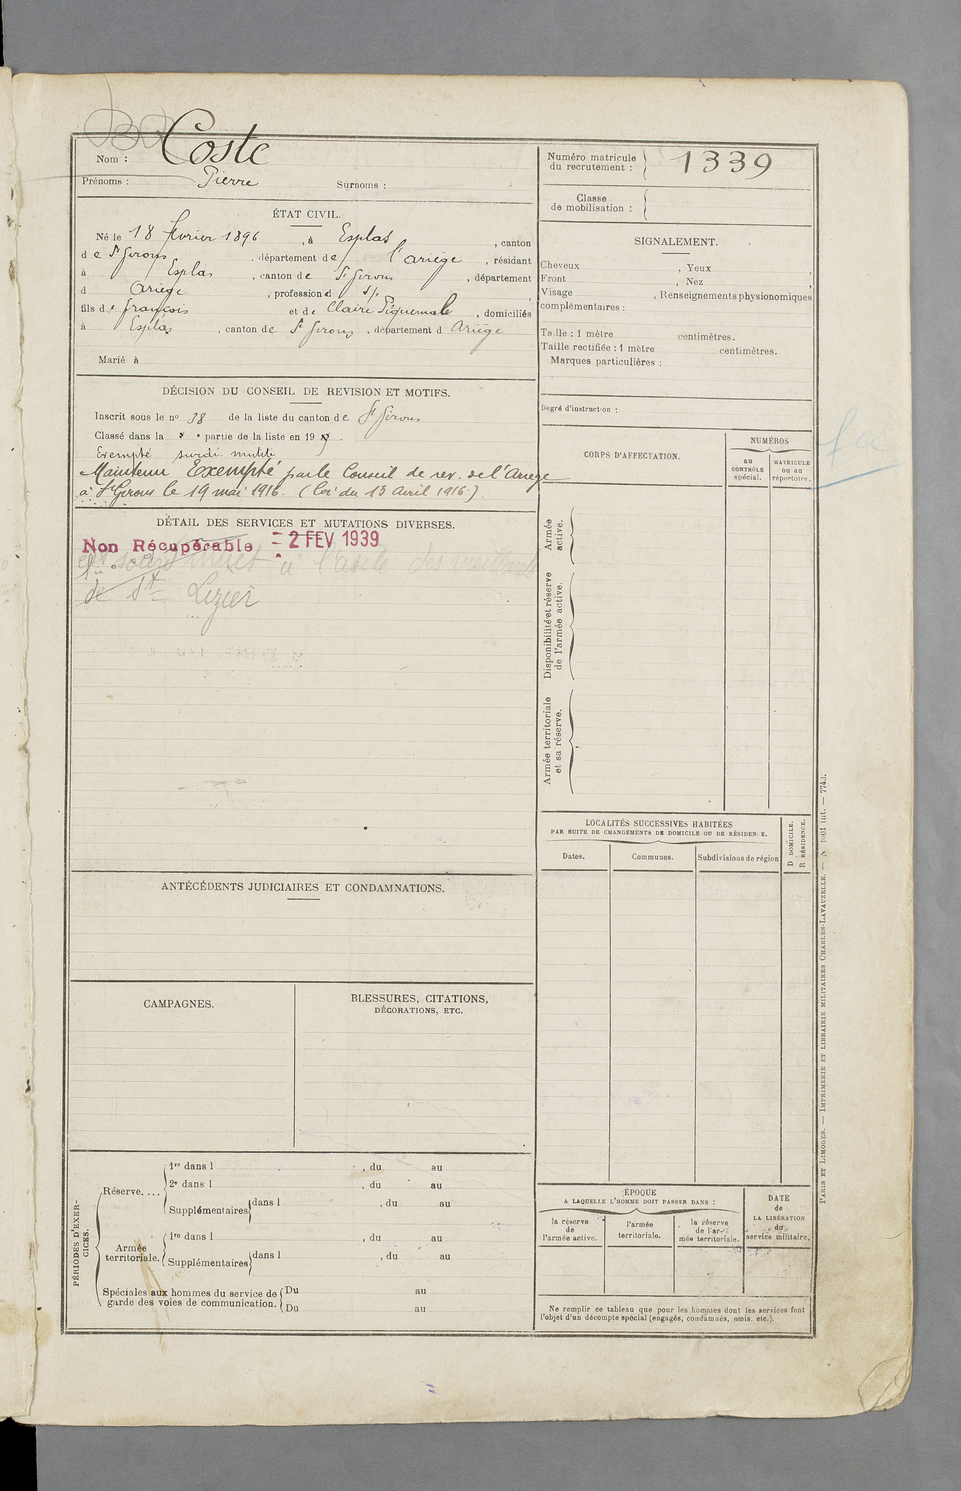 Coste
Nom :
Prénoms : Pierre Surnoms :
Numéro matricule
du recrutement : 1339
Classe
de mobilisation :
ÉTAT CIVIL.
Né le 18 février 1896, à Esplas, canton
de St Girons, département de l'ariège, résidant
à Esplas, canton de St Girons, département
d Ariège, profession d s/p
fils de françois et de Claire Piquemal, domiciliés
à Esplas, canton de St Girons, département d Ariège
Marié à
SIGNALEMENT.
Cheveux , Yeux ,
Front , Nez ,
Visage , Renseignements physionomiques
complémentaires :
Taille : 1 mètre centimètres.
Taille rectifiée : 1 mètre centimètres.
Marques particulières :
Degré d'instruction :
DÉCISION DU CONSEIL DE REVISION ET MOTIFS.
Inscrit sous le no 38 de la liste du canton de St Girons
Classé dans la e partie de la liste en 19
Exempté surdi mutité
Maintenu Exempté par le Conseil de rev. de l'Ariege
à St Girons le 19 mai 1916. (Loi du 13 Avril 1916)
DÉTAIL DES SERVICES ET MUTATIONS DIVERSES.
Non Récupérable = 2 FEV 1939
est sourd muet à l'asile des vieillards
de St Lizier
CORPS D'AFFECTATION.
NUMÉROS
AU
CONTRÔLE
spécial.
MATRICULE
OU AU
répertoire.
Armée
active.
Disponibilité et réserve
de l'armée active.
Armée territoriale
et sa réserve.
LOCALITÉS SUCCESSIVES HABITÉES
PAR SUITE DE CHANGEMENTS DE DOMICILE OU DE RÉSIDENCE.
Dates.
Communes.
Subdivisions de région
D DOMICILE.
R RÉSIDENCE.
ANTÉCÉDENTS JUDICIAIRES ET CONDAMNATIONS.
CAMPAGNES.
BLESSURES, CITATIONS,
DÉCORATIONS, ETC.
PÉRIODES D'EXER-
CICES.
Réserve....
1re dans l , du au
2e dans l , du au
Supplémentaires dans l , du au
Armée
territoriale.
1re dans l , du au
Supplémentaires dans l , du au
Spéciales aux hommes du service de
garde des voies de communication.
Du au
Du au
ÉPOQUE
A LAQUELLE L'HOMME DOIT PASSER DANS :
la réserve
de
l'armée active.
l'armée
territoriale.
la réserve
de l'ar-
mée territoriale.
DATE
de
LA LIBÉRATION
du
service militaire.
Ne remplir ce tableau que pour les hommes dont les services font
l'objet d'un décompte spécial (engagés, condamnés, omis, etc.).
PARIS ET LIMOGES. — IMPRIMERIE ET LIBRAIRIE MILITAIRES CHARLES-LAVAUZELLE.